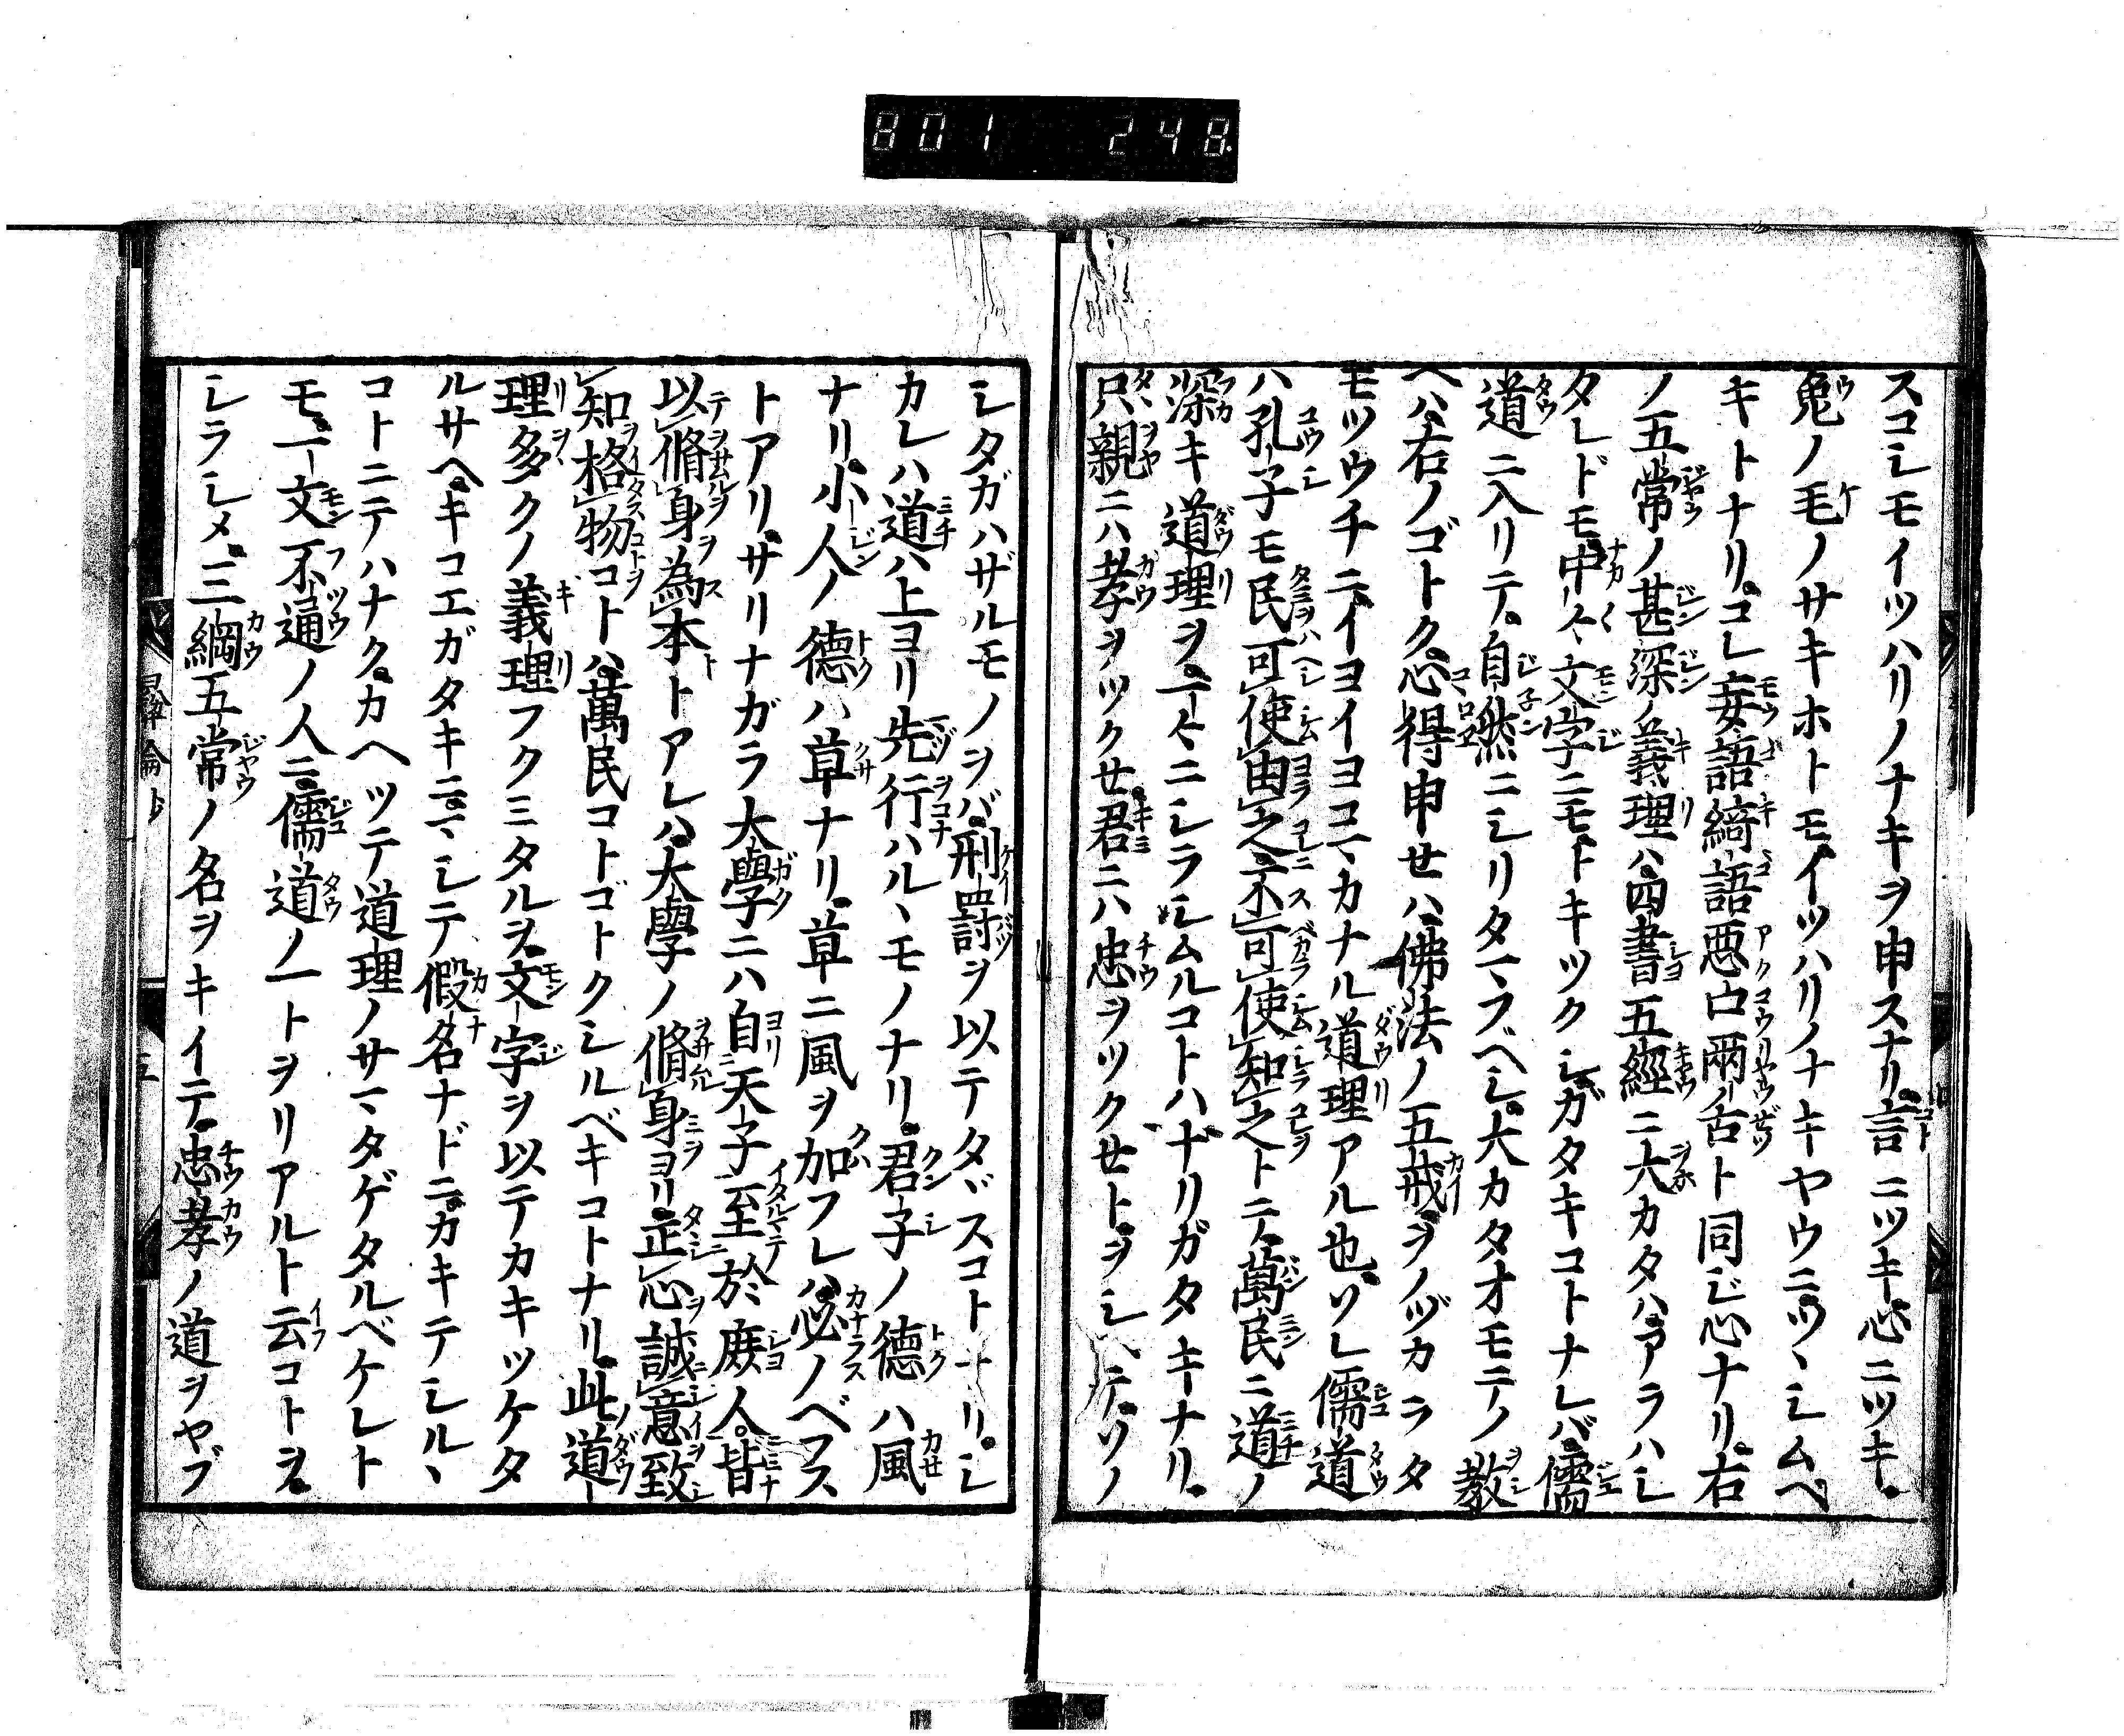 801 248
スコシモイツハリノナキヲ申スナリ。言ニツキ心ニツキ。
兎ノ毛ノサキホトモ。イツハリノナキヤウニ。ツヽシムベ
キトナリ。コレ妄語綺語悪口兩舌ト同ジ心ナリ。右
ノ五常ノ甚深ノ義理ハ。四書五經ニ大カタハ。アラハシ
タレドモ。中〳〵文字ニモ。トキツクシガタキコトナレバ。儒
道ニ入リテ。自然ニシリタマフベシ。大カタオモテノ教
ヘハ。右ノゴトク。心得申セハ。佛法ノ五戒ヲ。ノヅカラタ
モツウチニ。イヨイヨコマカナル道理アル也。ソレ儒道
ハ孔子モ民可使由之。不可使知之トニテ。萬民ニ道ノ
深キ道理ヲ。一々ニシラシムルコトハ。ナリガタキナリ。
只親ニハ孝ヲツクセ。君ニハ忠ヲツクセト。ヲシヘテ。ソノ
シタガハザルモノヲバ。刑罸ヲ以テタヾスコトナリ。シ
カレハ道ハ上ヨリ先行ハルヽモノナリ。君子ノ德ハ風
ナリ。小人ノ德ハ草ナリ。草ニ風ヲ加フレハ。必ノベフス
トアリ。サリナガラ大學ニハ自天子至於庻人。皆
以脩身為本トアレハ。大學ノ脩身ヨリ。正心誠意致
知格物コトハ。萬民コトゴトクシルベキコトナリ。此道
理多クノ義理フクミタルヲ。文字ヲ以テカキツケタ
ルサヘ。キコエガタキニ。マシテ假名ナドニ。カキテシルヽ
コトニテハナク。カヘツテ道理ノサマタゲタルベケレト
モ。一文不通ノ人ニ。儒道ノ一トヲリアルト云コトヲ。
シラシメ。三綱五常ノ名ヲキイテ。忠孝ノ道ヲヤブ